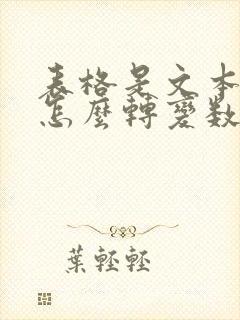 表格是文本
怎麼轉變数
葉輕輕